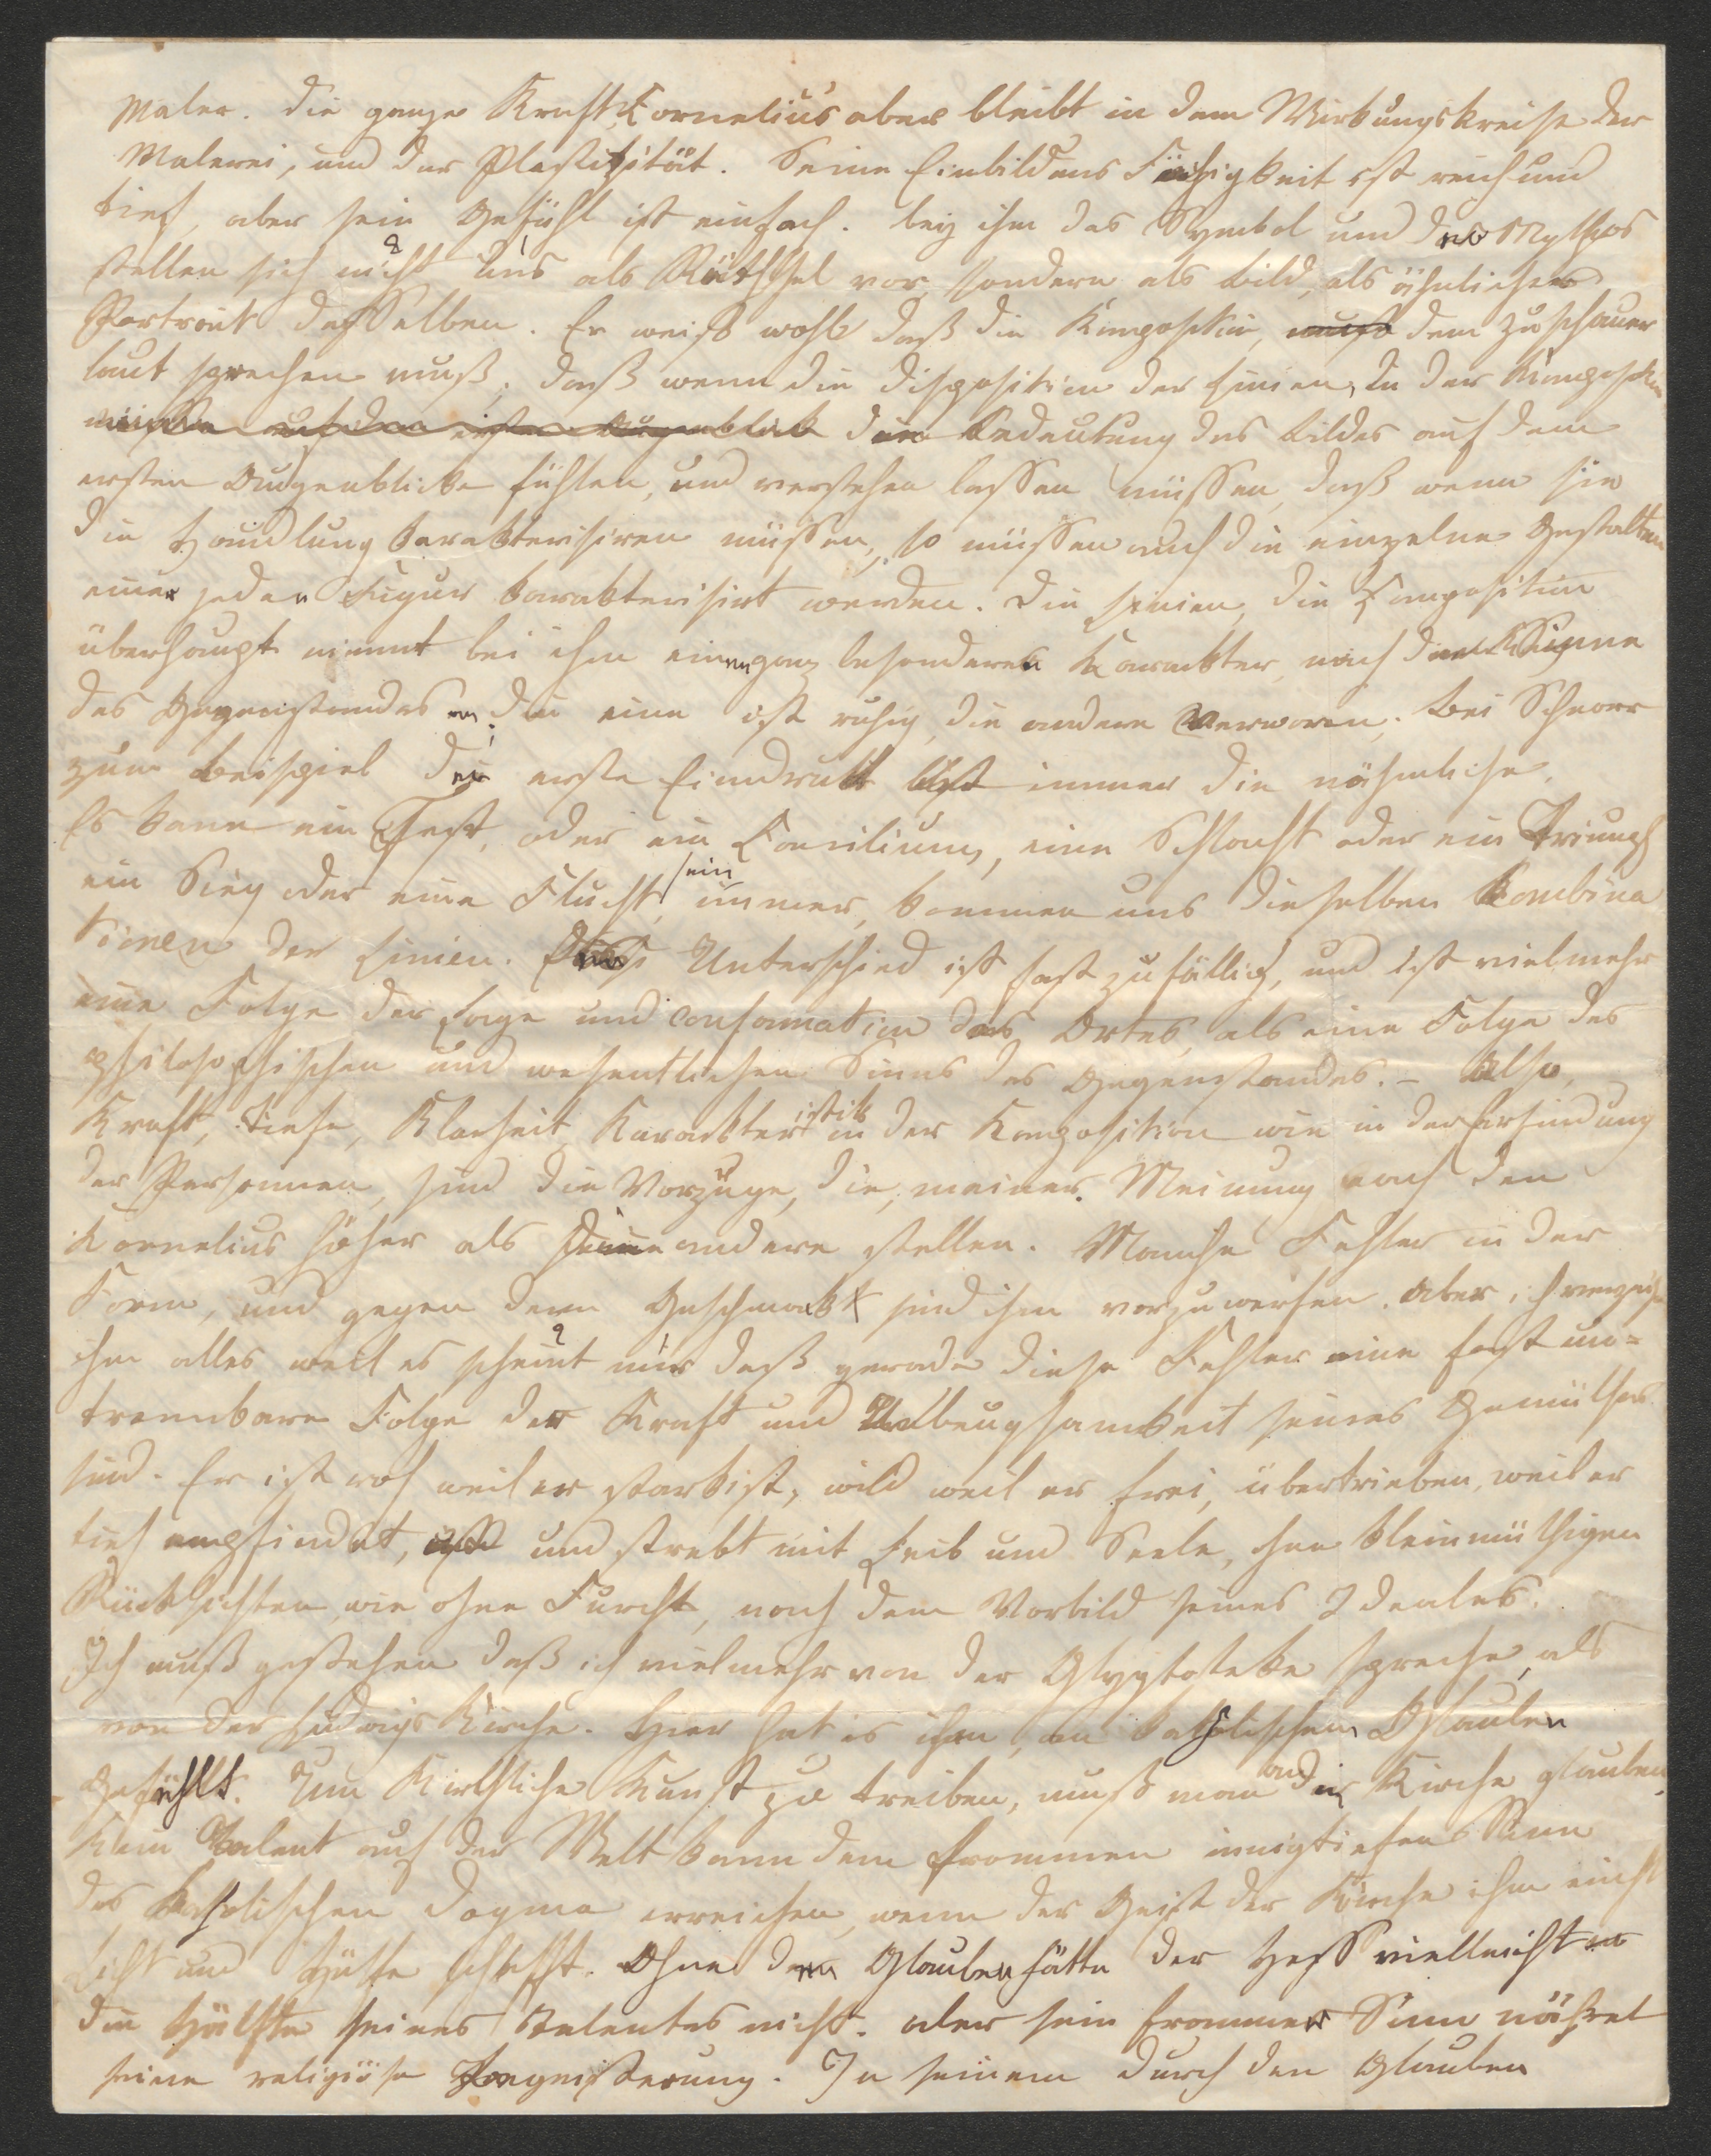 Maler. Die ganze Kraft Cornelius aber bleibt in dem Wirkungskreise der
Malerei, und der Plastizität. Seine Einbildens Fähigkeit ist reich und
tief, aber sein Gefühl ist einfach. bey ihm das Symbol und der Mythos
stellen sich nicht uns als Räthsel vor, sondern als Bild, als ähnliches
Portrait desselben. Er weiß wohl daß die Komposition, muß dem Zuschauer
laut sprechen muß, daß wenn die Disposition der Linien, in der Komposition
müssen auf den ersten Augenblick die Bedeutung des Bildes auf dem
ersten Augenblicke fühlen, und verstehen lassen müssen, daß wenn sie
die Handlung karakterisiren müssen, so müssen auch die einzelne Gestalten
einer jeden Figur karakterisirt werden. Die Linien, die Composition
überhaupt nimmt bei ihm einen ganz besonderen Karackter, nach dem Sinne
des Gegenstandes an: die eine ist ruhig, die andere verworren. Bei Schnorr
zum Beispiel der erste Eindruck ist immer die nähmliche.
Es kann ein Fest, oder ein Concilium, eine Schlacht oder ein Triumph
ein Sieg oder eine Flucht sein, immer, kommen uns dieselben Kombina
tionen der Linien. Der Unterschied ist fast zufällig, und ist vielmehr
eine Folge der Lage und Conformation des Ortes, als eine Folge des
philosophischen und wesentlichen Sinns des Gegenstandes. – Also,
Kraft, Tiefe, Klarheit, Karackteristik in der Komposition wie in der Erfindung
der Personnen, sind die Vorzüge, die, meiner Meinung nach den
Kornelius höher als andere stellen. Manche Fehler in der
Form, und gegen den Geschmack sind ihm vorzuwerfen. Aber, ich verzeihe
ihm alles weil es scheint mir daß gerade diese Fehler eine fast un=
trennbare Folge der Kraft und Unbeugsamkeit seines Gemüthes
sind. Er ist roh weil er stark ist, wild weil er frei, übertrieben, weil er
tief empfindet, und strebt mit Leib und Seele, ohne kleinmüthigen
Rücksichten wie ohne Furcht, nach dem Vorbild seines Ideales.
Ich muß gestehen daß ich vielmehr von der Glyptoteke spreche, als
von der Ludwigs Kirche. Hier hat es ihm, an katholischen Glauben
Gefehlt. Um Kirchliche Kunst zu treiben, muß man an die Kirche glauben.
Kein Talent auf der Welt kann dem frommen innigtiefen Sinn
des katholischen Dogma erreichen, wenn der Geist der Kirche ihm nicht
Licht und Hülfe schafft. Ohne den Glauben hätte der Hess vielleicht
die Hälfte seines Talentes nicht. aber sein frommer Sinn nähret
seine religiöse Begeisterung. In seinem durch den Glauben